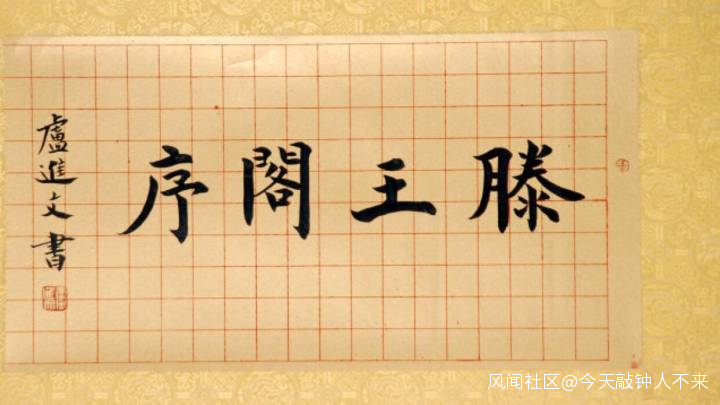 滕王閣序
盧進文書
风闻社区@今天敲钟人不来